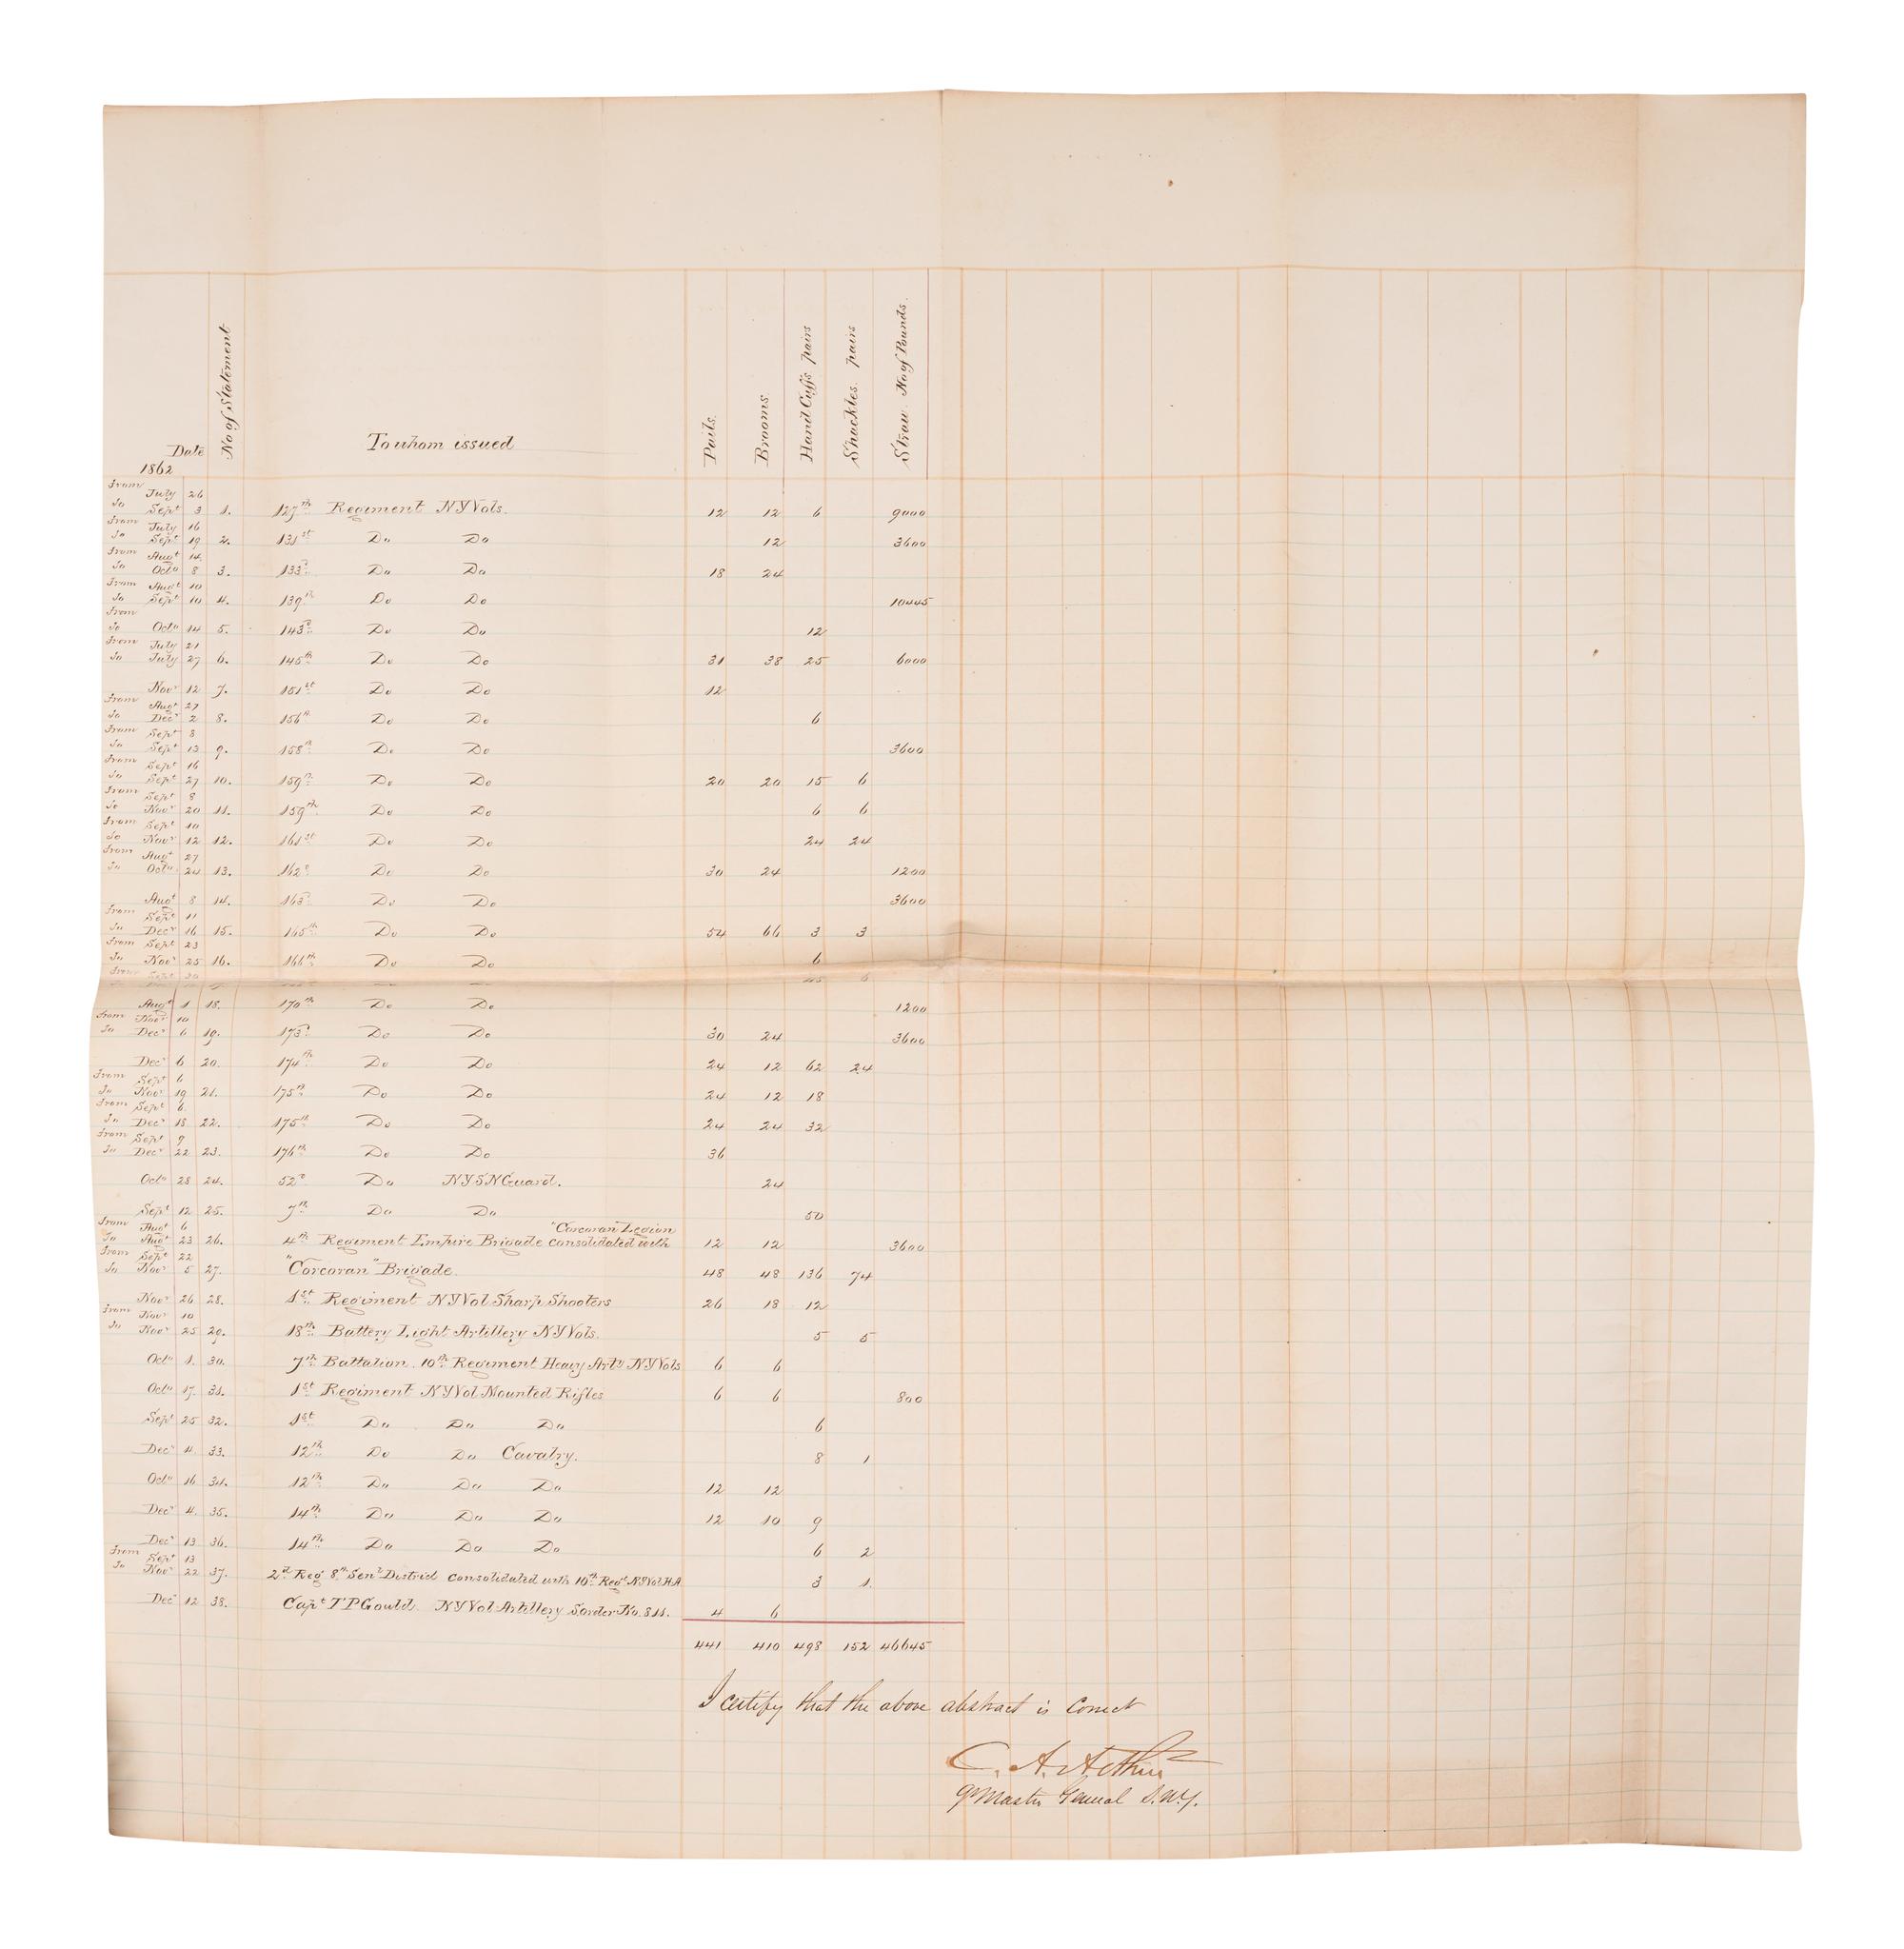 Date No of Statement To whom issued Pails. Brooms. Hand Cuffs pairs Shackles. pairs Straw. No of Pounds.
1862
From July 26
To Sept 3 1. 127th Regiment NYVols. 12 12 6 9000
From July 16
To Sept 19 2. 131st Do Do 12 3600
From Augt 14
To Octo 8 3. 133d Do Do 18 24
From Augt 10
To Sept 10 4. 139th Do Do 10445
From
To Octo 14 5. 143d Do Do 12
From July 21
To July 27 6. 145th Do Do 31 38 25 6000
Novr 12 7. 151st Do Do 12
From Augt 27
To Decr 2 8. 156th Do Do 6
From Sept 8
To Sept 13 9. 158th Do Do 3600
From Sept 16
To Sept 27 10. 159th Do Do 20 20 15 6
From Sept 8
To Novr 20 11. 159th Do Do 6 6
From Sept 10
To Novr 12 12. 161st Do Do 24 24
From Augt 27
To Octo 24 13. 162d Do Do 30 24 1200
Augt 8 14. 163d Do Do 3600
From Sept 11
To Decr 16 15. 165th Do Do 54 66 3 3
From Sept 23
To Novr 25 16. 166th Do Do 6
From Sept
Augt 1 18. 170th Do Do 1200
From Novr 10
To Decr 6 19. 173d Do Do 30 24 3600
Decr 6 20. 174th Do Do 24 12 62 24
From Sept 6
To Novr 19 21. 175th Do Do 24 12 18
From Sept 6.
To Decr 18 22. 175th Do Do 24 24 32
From Sept 9
To Decr 22 23. 176th Do Do 36
Octo 28 24. 52d Do NYSNGuard. 24
Sept 12 25. 7th Do Do 50
From Augt 6 "Corcoran" Legion
To Augt 23 26. 4th Regiment Empire Brigade consolidated with 12 12 3600
From Sept 22
To Novr 5 27. "Corcoran" Brigade. 48 48 136 74
Novr 26 28. 1st Regiment NYVol Sharp Shooters 26 18 12
From Novr 10
To Novr 25 29. 18th Battery Light Artillery NYVols. 5 5
Octo 1. 30. 7th Battalion. 10th Regiment Heavy Arty NYVols 6 6
Octo 17. 31. 1st Regiment NYVol Mounted Rifles 6 6 800
Sept 25 32. 1st Do Do Do 6
Decr 4 33. 12th Do Do Cavalry. 8 1
Octo 16 34. 12th Do Do Do 12 12
Decr 4. 35. 14th Do Do Do 12 10 9
Decr 13 36. 14th Do Do Do 6 2
From Sept 13
To Novr 22 37. 2d Reg 8th Senl District consolidated with 10th Regt NYVol HA 3 1.
Decr 12 38. Capt T P Gould. NYVol Artillery S order No. 811. 4 6
441 410 498 152 46645
I certify that the above abstract is correct
C. A. Arthur
Qr Master General S.N.Y.